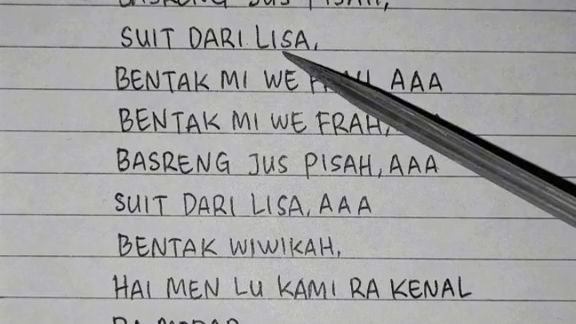 BASRENG JUS PISAH,
SUIT DARI LISA,
BENTAK MI WE FRAH, AAA
BENTAK MI WE FRAH,
BASRENG JUS PISAH, AAA
SUIT DARI LISA, AAA
BENTAK WIWIKAH,
HAI MEN LU KAMI RA KENAL